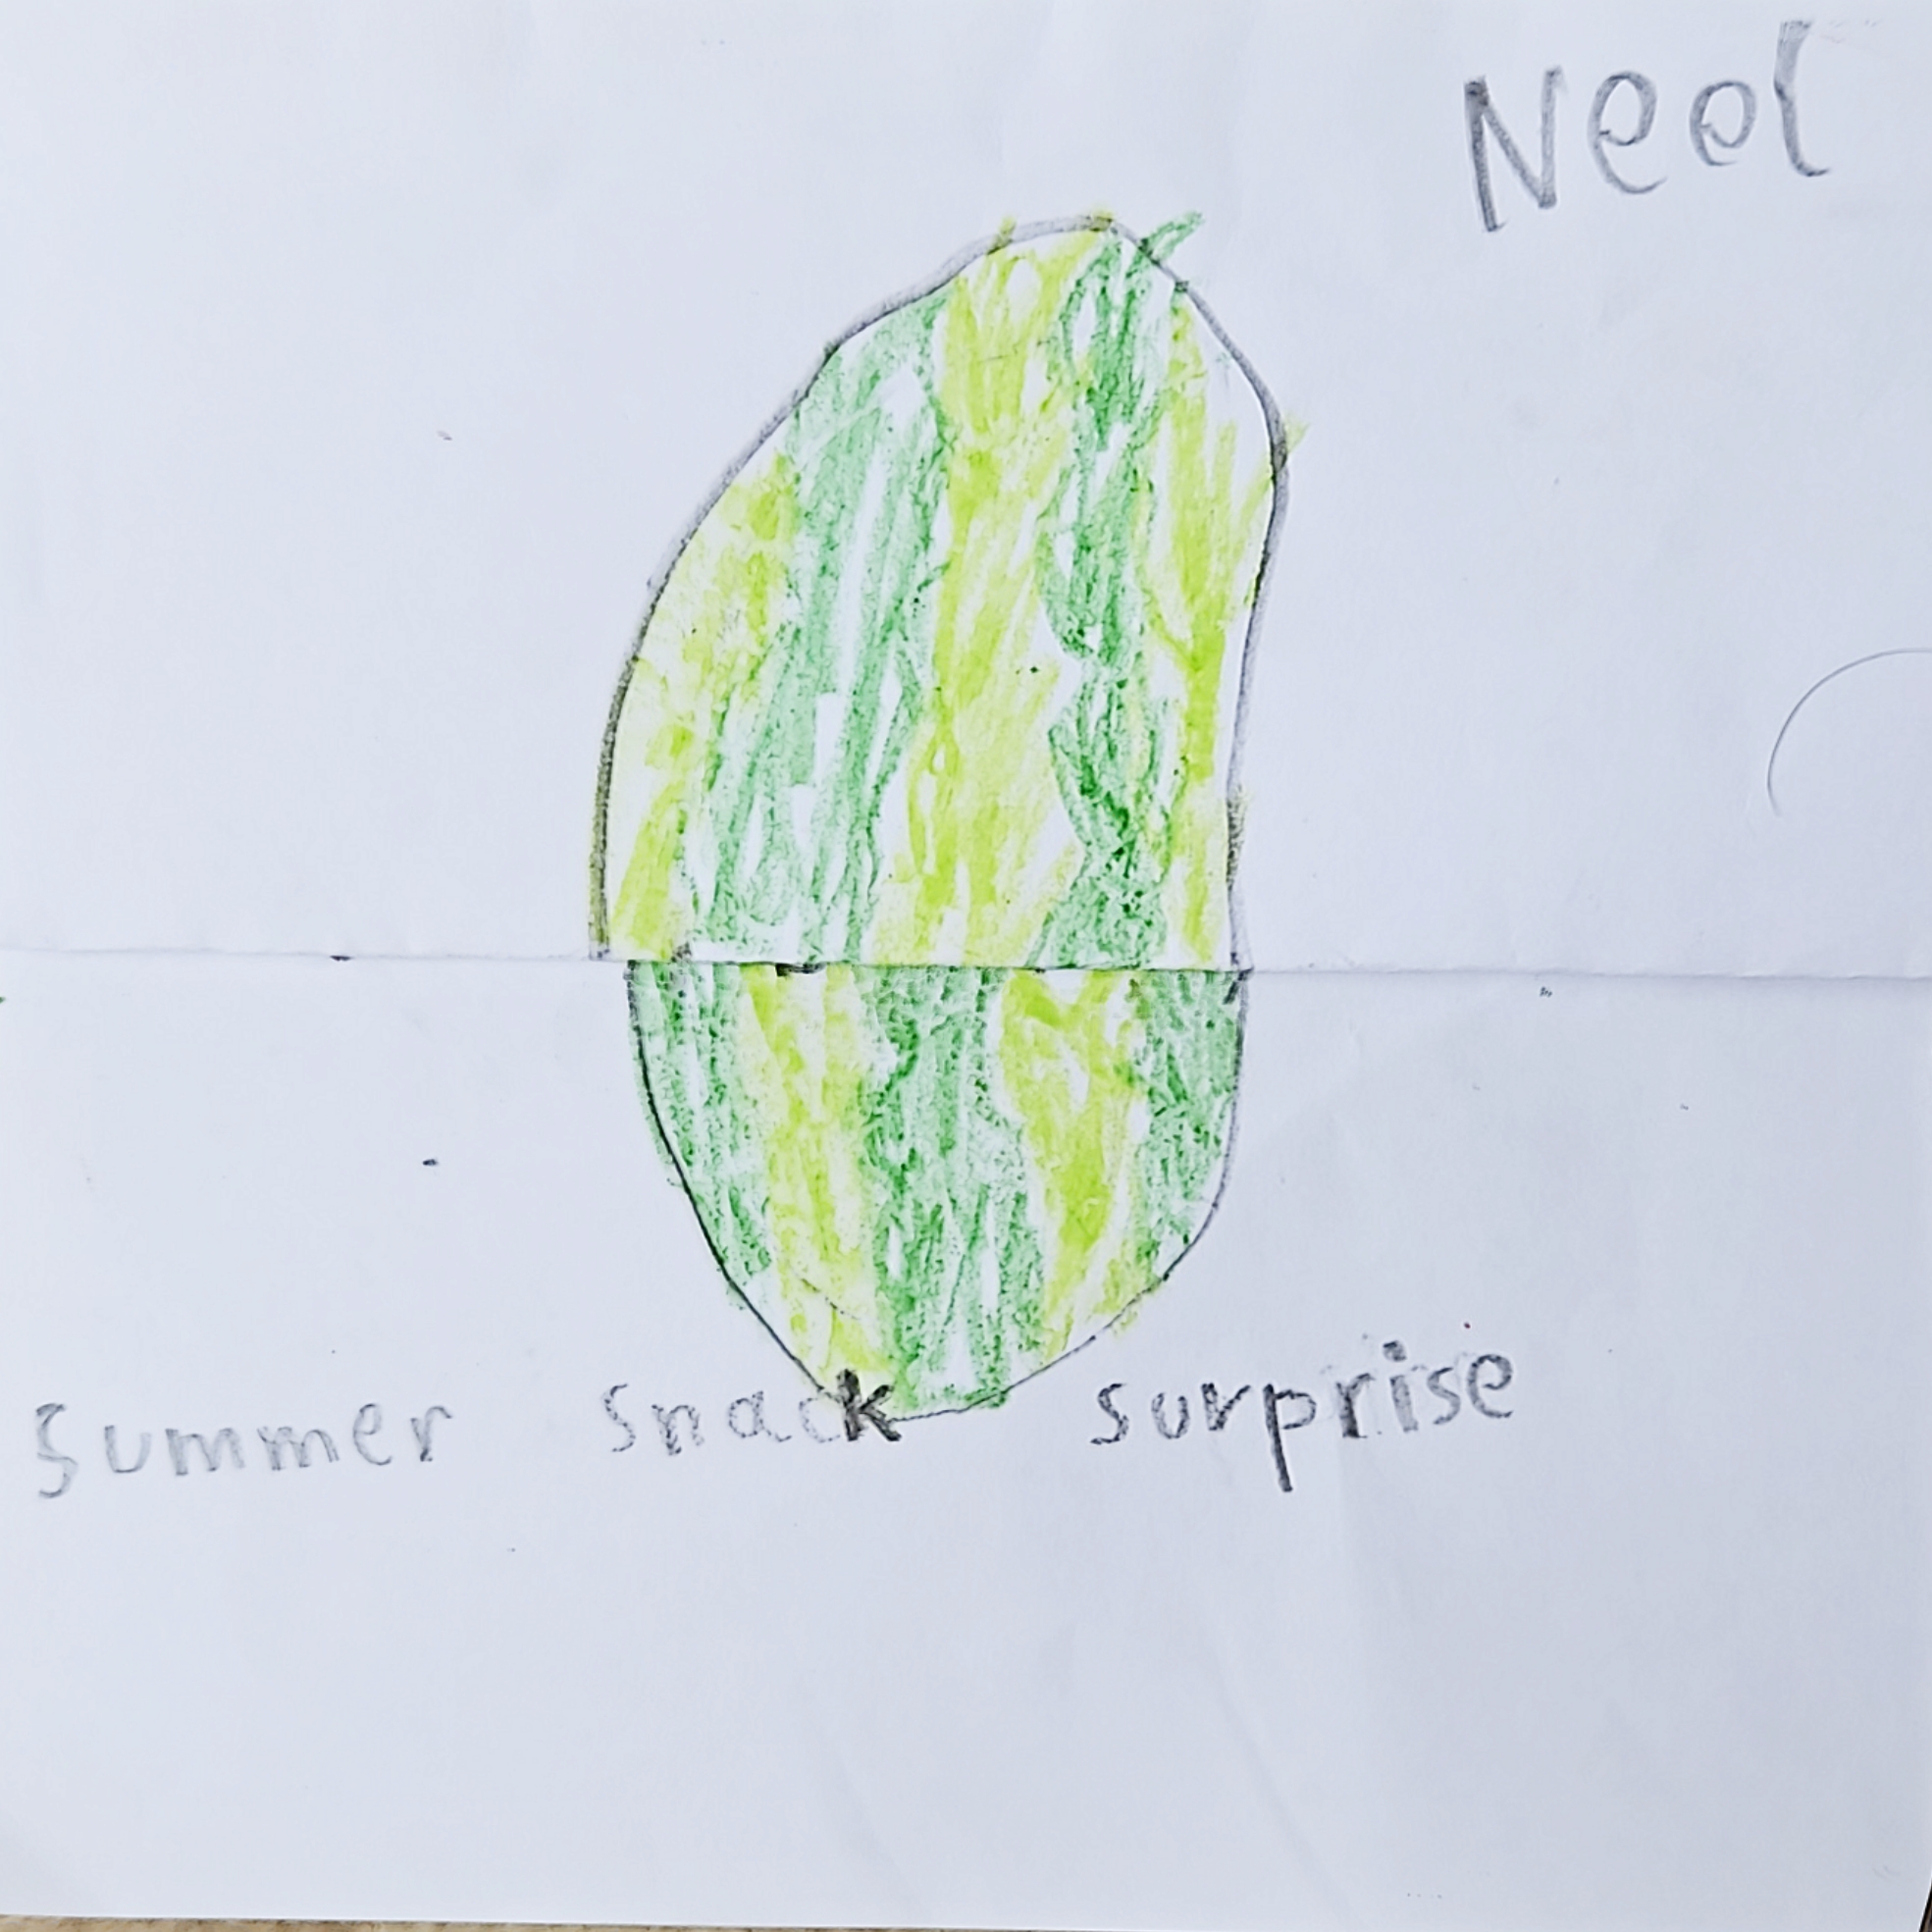 Neel
Summer snack surprise